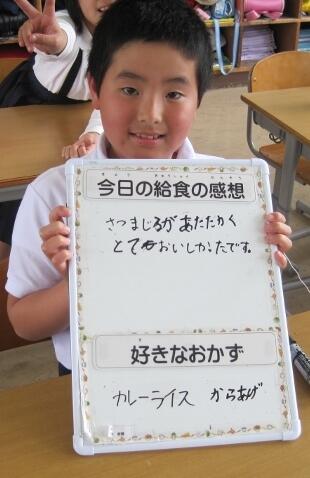 今日の給食の感想
さつまじるがあたたかく
とてもおいしかったです。
好きなおかず
カレーライス からあげ